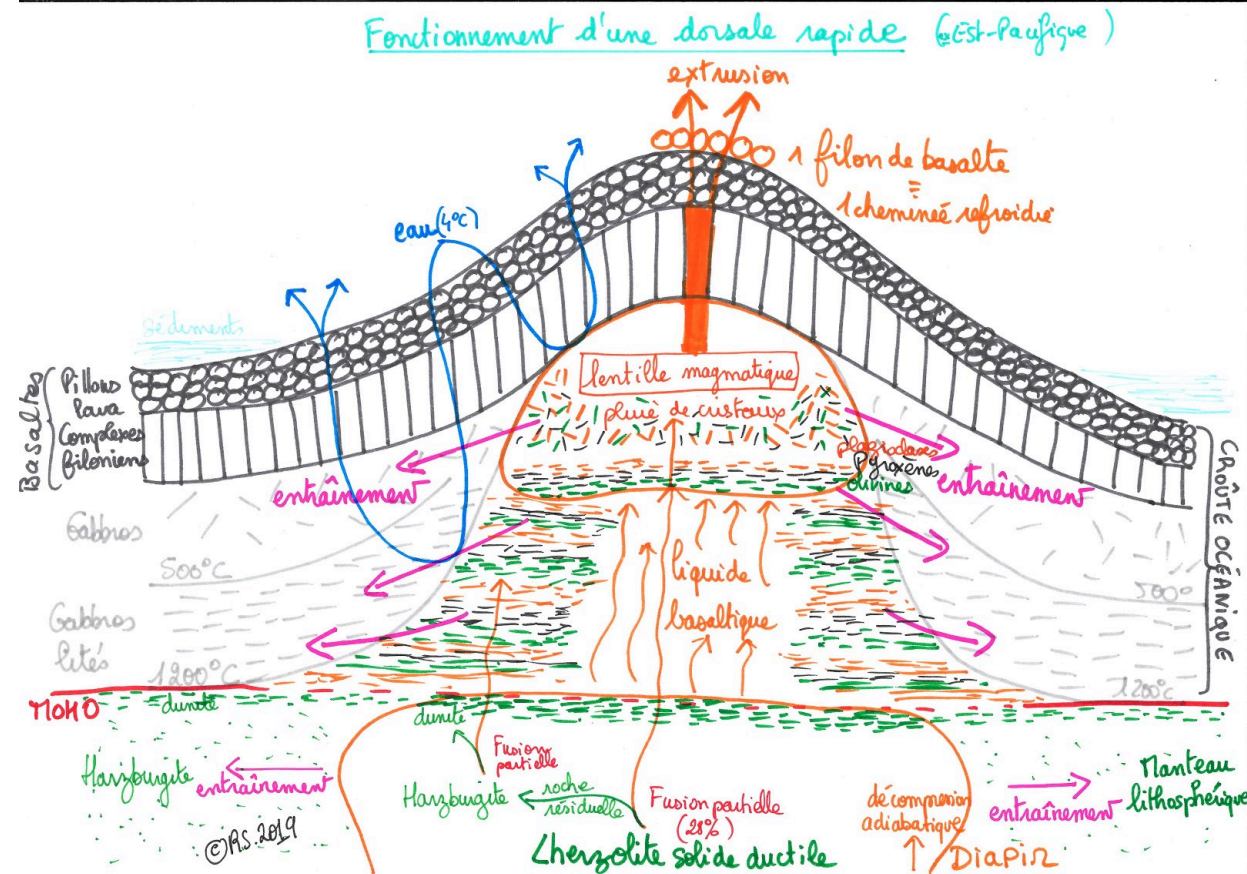 Fonctionnement d'une dorsale rapide (Est-Pacifique)
extrusion
1 filon de basalte
=
1 cheminée refroidie
eau (4°C)
sédiments
Basaltes
Pillows
lava
Complexes
filoniens
lentille magmatique
pluie de cristaux
plagioclases
Pyroxènes
olivines
entraînement
entraînement
Gabbros
500°C
500°
liquide
basaltique
Gabbros
lités
1200°C
1200°C
CROÛTE OCÉANIQUE
MOHO
dunite
dunite
Harzburgite
entraînement
Fusion
partielle
Harzburgite
roche
résiduelle
Fusion partielle
(28%)
décompression
adiabatique
entraînement
Manteau
lithosphérique
©R.S. 2019
Lherzolite solide ductile
DiAPiR